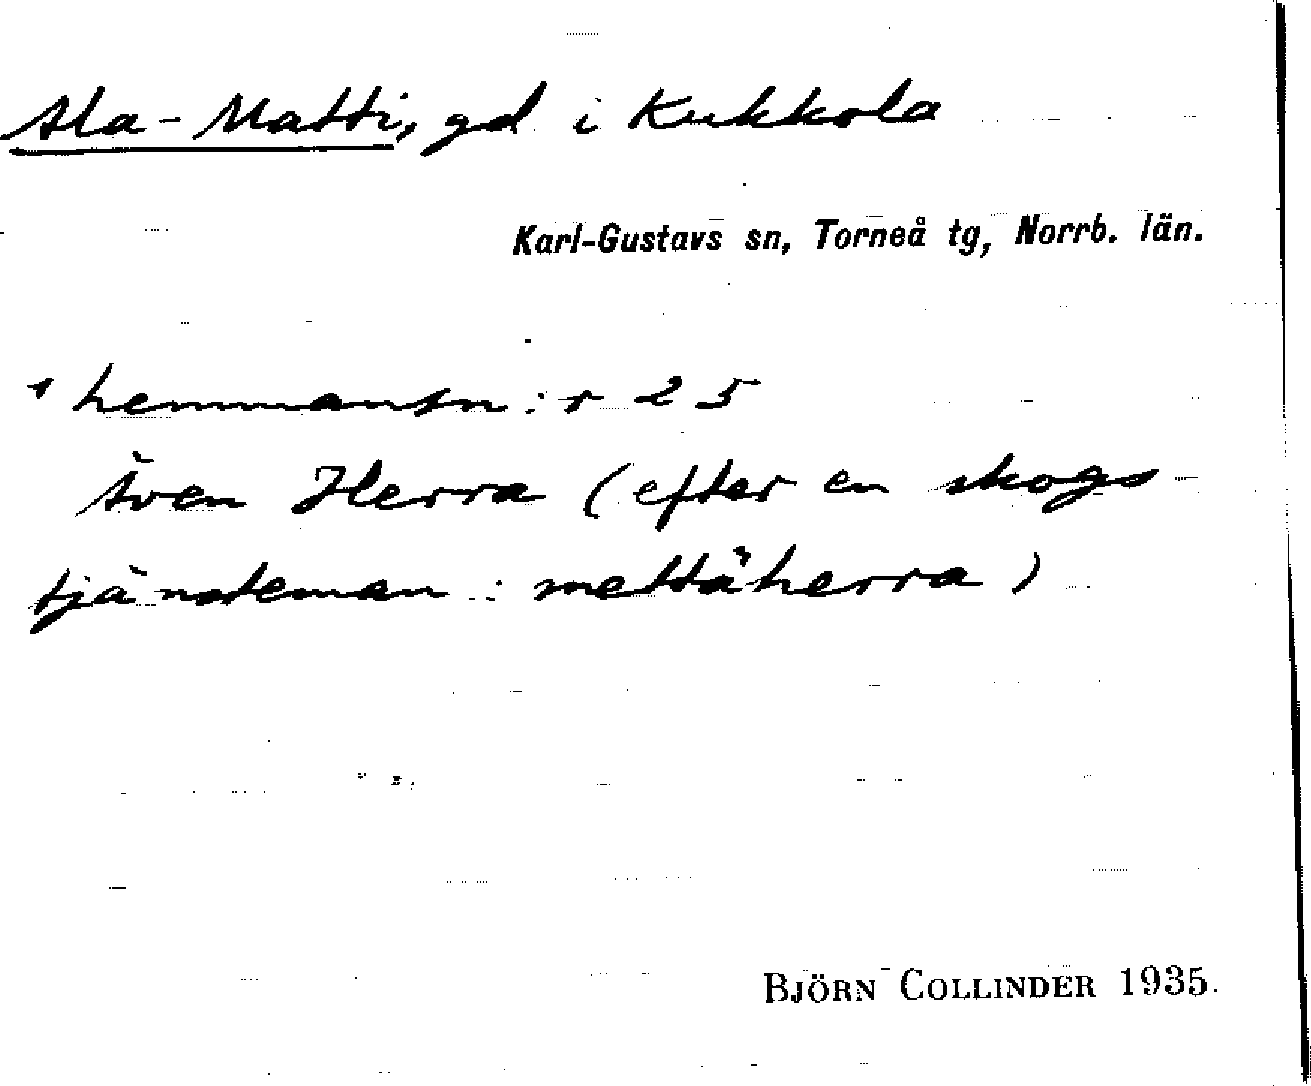 Ala-Matti, gd i Kukkola
Karl-Gustavs sn, Torneå tg, Norrb. län.
hemmansn:r 25
Även Herra (efter en skogs-
tjänsteman: mettäherra)
BJÖRN COLLINDER 1935.